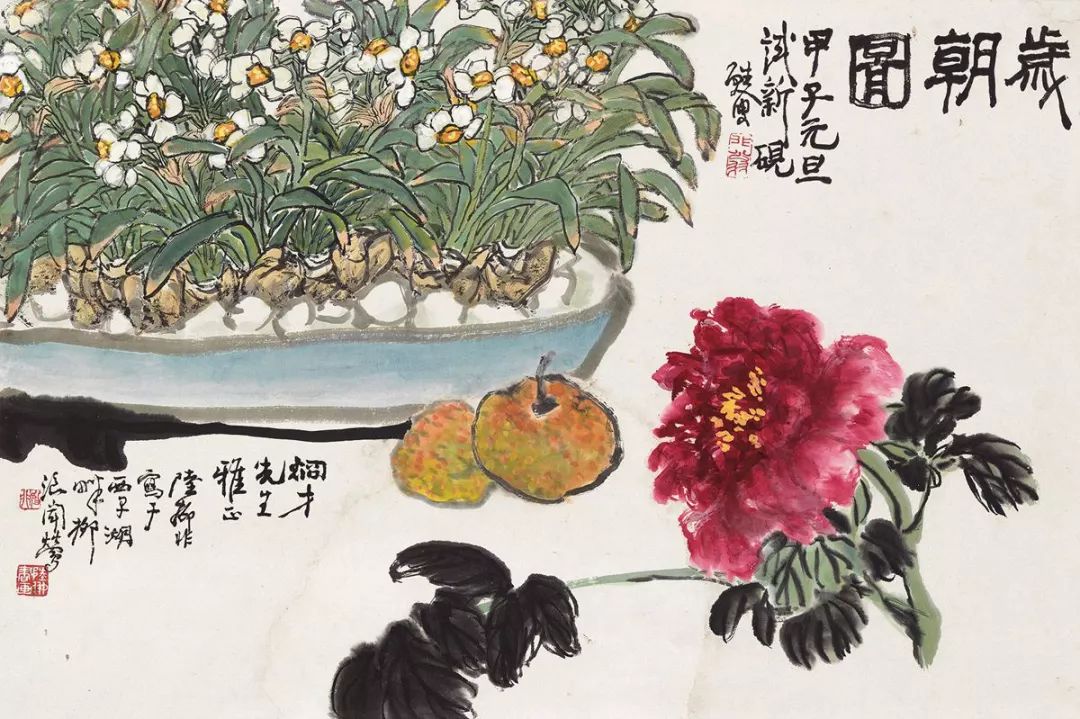 歲朝圖
甲子元旦
試新硯
甦叟
烱才
先生
雅正
陸抑非
寫于
西子湖
畔柳
浪聞鶯